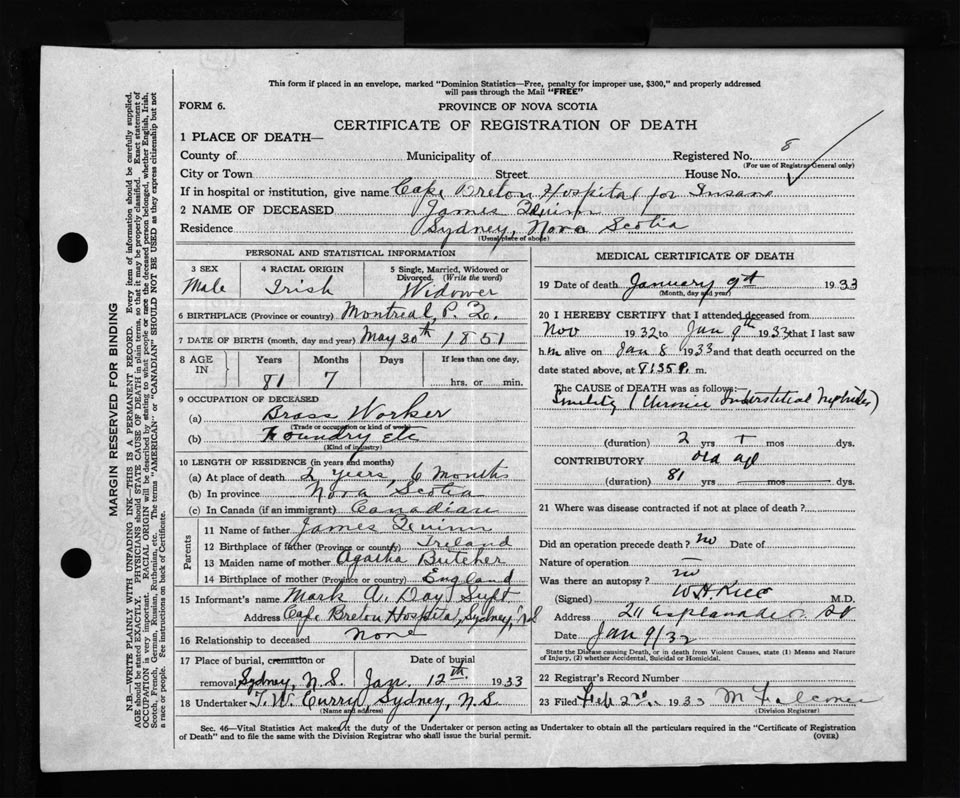 This form if placed in an envelope, marked "Dominion Statistics—Free, penalty for improper use, $300," and properly addressed
will pass through the Mail "FREE"
FORM 6.
PROVINCE OF NOVA SCOTIA
CERTIFICATE OF REGISTRATION OF DEATH
1 PLACE OF DEATH—
County of Municipality of Registered No. 8
(For use of Registrar General only)
City or Town Street House No.
If in hospital or institution, give name Cape Breton Hospital for Insane
2 NAME OF DECEASED James Quinn
Residence Sydney, Nova Scotia
(Usual place of abode)
PERSONAL AND STATISTICAL INFORMATION
3 SEX
Male
4 RACIAL ORIGIN
Irish
5 Single, Married, Widowed or
Divorced. (Write the word)
Widower
6 BIRTHPLACE (Province or country) Montreal, P. Q.
7 DATE OF BIRTH (month, day and year) May 30th 1851
8 AGE
IN
Years
81
Months
7
Days
If less than one day,
hrs. or min.
9 OCCUPATION OF DECEASED
(a) Brass Worker
(Trade or occupation or kind of work)
(b) Foundry Etc
(Kind of industry)
10 LENGTH OF RESIDENCE (in years and months)
(a) At place of death 2 years, 6 months
(b) In province Nova Scotia
(c) In Canada (if an immigrant) Canadian
Parents
11 Name of father James Quinn
12 Birthplace of father (Province or country) Ireland
13 Maiden name of mother Agatha Butcher
14 Birthplace of mother (Province or country) England
15 Informant's name Mark A. Day Supt
Address Cape Breton Hospital, Sydney, N S
16 Relationship to deceased None
17 Place of burial, cremation or
removal Sydney, N.S.
Date of burial
Jan. 12th 1933
18 Undertaker T. W. Curry Sydney, N.S.
(Name and address)
MEDICAL CERTIFICATE OF DEATH
19 Date of death January 9th 1933
(Month, day and year)
20 I HEREBY CERTIFY that I attended deceased from
Nov 1932 to Jan 9th 1933 that I last saw
h im alive on Jan 8 1933 and that death occurred on the
date stated above, at 8:35 P. m.
The CAUSE OF DEATH was as follows:
Senility (Chronic Interstitial Nephritis)
(duration) 2 yrs + mos dys.
CONTRIBUTORY old age
(duration) 81 yrs mos dys.
21 Where was disease contracted if not at place of death?
Did an operation precede death? no Date of
Nature of operation
Was there an autopsy? no
(Signed) W H Rice M.D.
Address 211 Esplanade St
Date Jan 9/32
State the Disease causing Death, or in death from Violent Causes, state (1) Means and Nature
of Injury, (2) whether Accidental, Suicidal or Homicidal.
22 Registrar's Record Number
23 Filed Feb 2nd 1933 M
(Division Registrar)
Sec. 46—Vital Statistics Act makes it the duty of the Undertaker or person acting as Undertaker to obtain all the particulars required in the "Certificate of Registration
of Death" and to file the same with the Division Registrar who shall issue the burial permit.
(OVER)
MARGIN RESERVED FOR BINDING
N.B.—WRITE PLAINLY WITH UNFADING INK—THIS IS A PERMANENT RECORD. Every item of information should be carefully supplied.
AGE should be stated EXACTLY. PHYSICIANS should STATE CAUSE OF DEATH in plain terms, so that it may be properly classified. Exact statement of
OCCUPATION is very important. RACIAL ORIGIN will be described by stating to what people or race the deceased person belonged, whether English, Irish,
Scotch, French, German, Russian, Ruthenian, etc. The terms "AMERICAN" or "CANADIAN" SHOULD NOT BE USED as they express citizenship but not
a race or people. Fee instructions on back of Certificate.